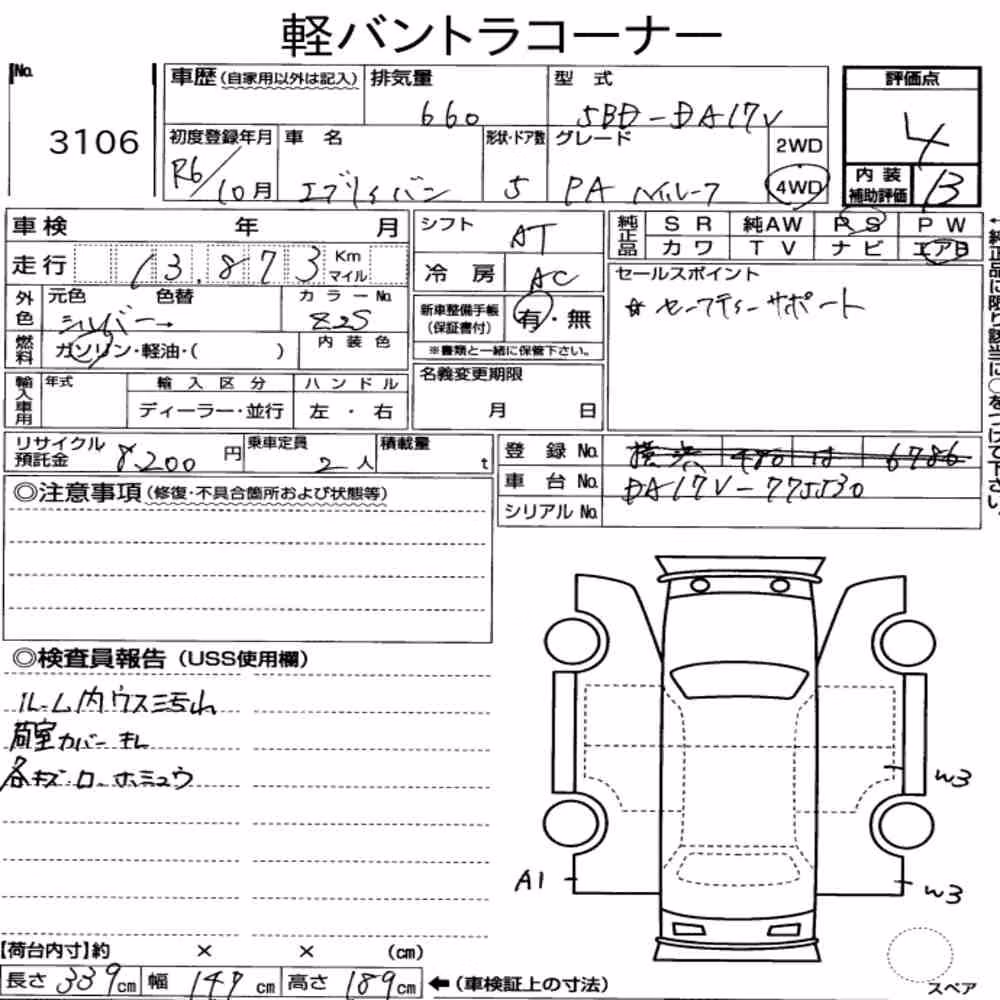 軽バントラコーナー
No. 3106
車歴(自家用以外は記入)
排気量 660
型式 5BD-DA17V
評価点 4
初度登録年月 R6/10月
車名 エブリイバン
形状・ドア数 5
グレード PA ハイルーフ
2WD
4WD
内装補助評価 B
車検 年 月
走行 13,873 Km マイル
シフト AT
冷房 AC
純正品 SR 純AW PS PW
カワ TV ナビ エアB
←純正品に限り該当に○をつけて下さい。
外色 元色 色替 シルバー→
カラーNo. Z2S
燃料 ガソリン・軽油・( )
内装色
新車整備手帳(保証書付) 有・無
※書類と一緒に保管下さい。
セールスポイント
☆セーフティーサポート
輸入車用 年式
輸入区分 ディーラー・並行
ハンドル 左・右
名義変更期限 月 日
リサイクル預託金 8,200円
乗車定員 2人
積載量 t
登録No. 横浜 480 は 6786
車台No. DA17V-775530
シリアルNo.
◎注意事項(修復・不具合箇所および状態等)
◎検査員報告(USS使用欄)
ルーム内ウスヨゴレ
荷室カバーキレ
各キズ・
W3
A1
W3
スペア
【荷台内寸】約 × × (cm)
長さ 339cm 幅 147cm 高さ 189cm ←(車検証上の寸法)